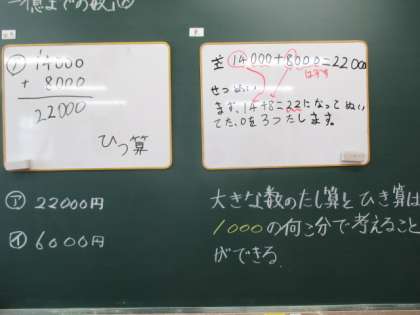 一億までの数
㋐ 14000
+ 8000
22000
ひっ算
㋐ 22000円
㋑ 6000円
式 14000+8000=22000
はずす
せつめい
まず、14+8=22になって ぬい
てた、0を3つたします。
大きな数のたし算とひき算は
1000の何こ分で考えること
ができる.